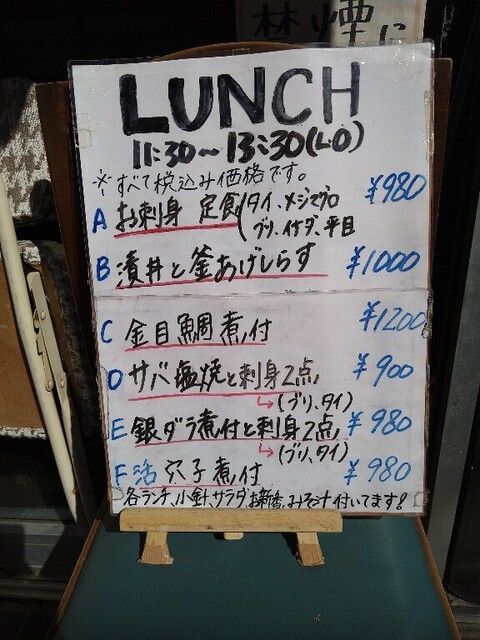 禁煙に
LUNCH
11:30~13:30(L.O)
※すべて税込み価格です。
A お刺身 定食(タイ、メジマグロ ¥980
ブリ、イサダ、平目
B 漬丼と釜あげしらす ¥1000
C 金目鯛煮付 ¥1200
D サバ塩焼と刺身2点 ¥900
↳(ブリ、タイ)
E 銀ダラ煮付と刺身2点 ¥980
↳(ブリ、タイ)
F 活 穴子煮付 ¥980
各ランチ、小鉢、サラダ、お新香、みそ汁付いてます!